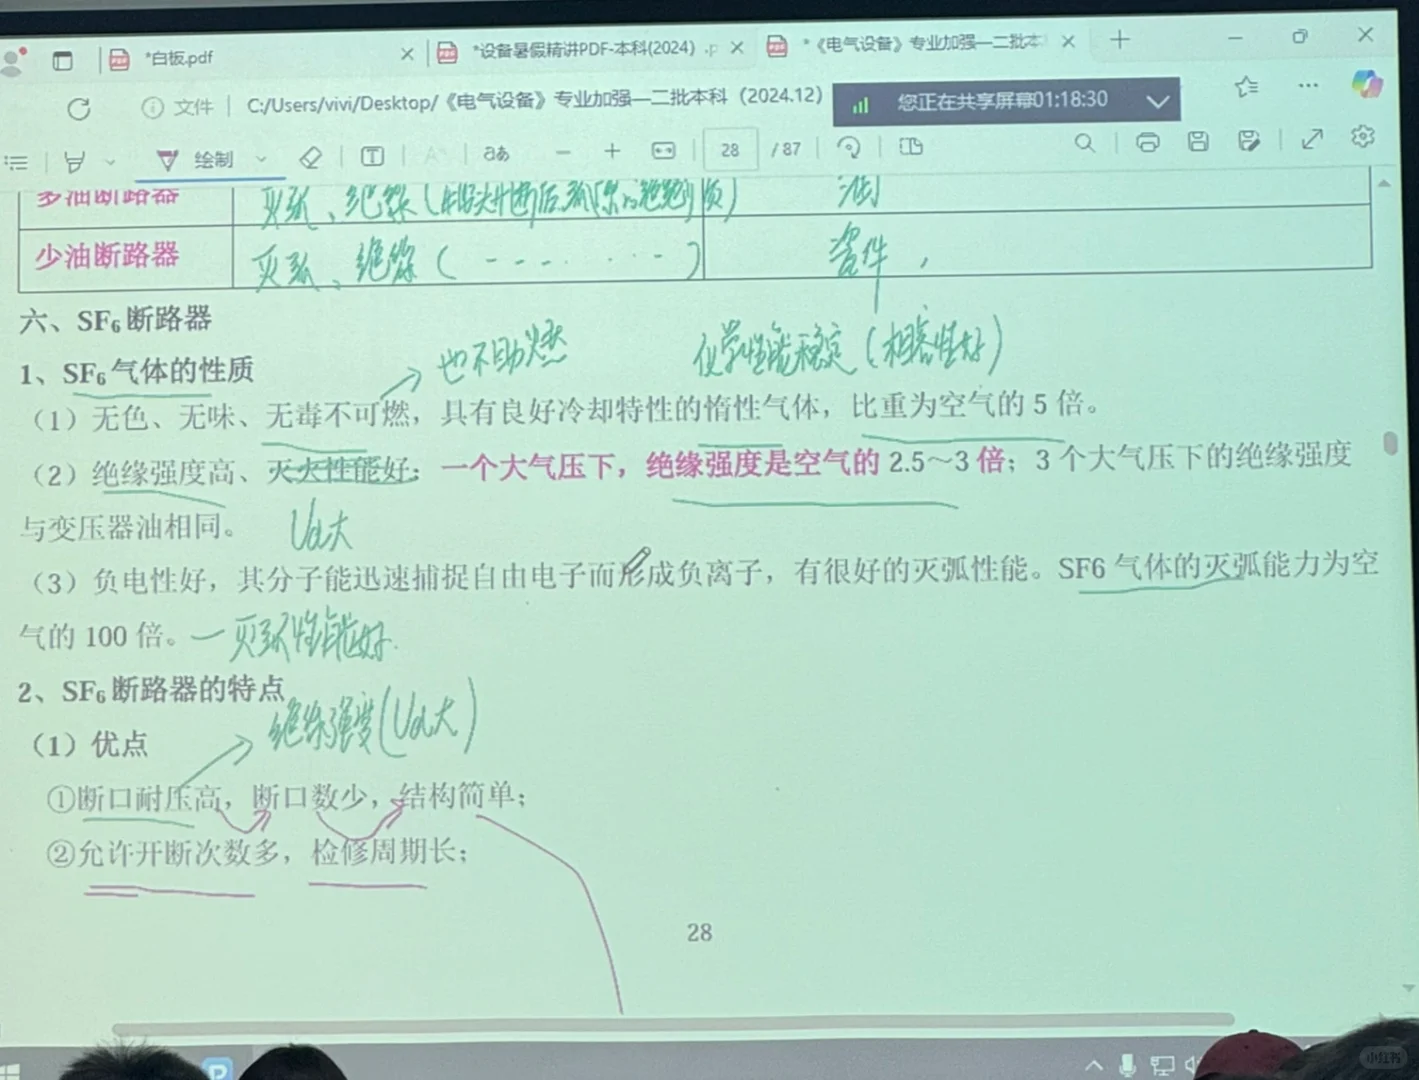 *白板.pdf
*设备暑假精讲PDF-本科(2024) .p
*《电气设备》专业加强—二批本
文件 C:/Users/vivi/Desktop/《电气设备》专业加强—二批本科（2024.12）
您正在共享屏幕01:18:30
绘制 aあ 28 /87
多油断路器 灭弧、绝缘 油
少油断路器 灭弧、绝缘（- - - - · · · -） 瓷件,
六、SF₆断路器
1、SF₆气体的性质
也不助燃 化学性能稳定（相容性好）
（1）无色、无味、无毒不可燃，具有良好冷却特性的惰性气体，比重为空气的 5 倍。
（2）绝缘强度高、灭火性能好；一个大气压下，绝缘强度是空气的 2.5～3 倍；3 个大气压下的绝缘强度
与变压器油相同。 Ud大
（3）负电性好，其分子能迅速捕捉自由电子而形成负离子，有很好的灭弧性能。SF6 气体的灭弧能力为空
气的 100 倍。— 灭弧性能好.
2、SF₆断路器的特点
绝缘强度(Ud大)
（1）优点
①断口耐压高，断口数少，结构简单；
②允许开断次数多，检修周期长；
28
小红书